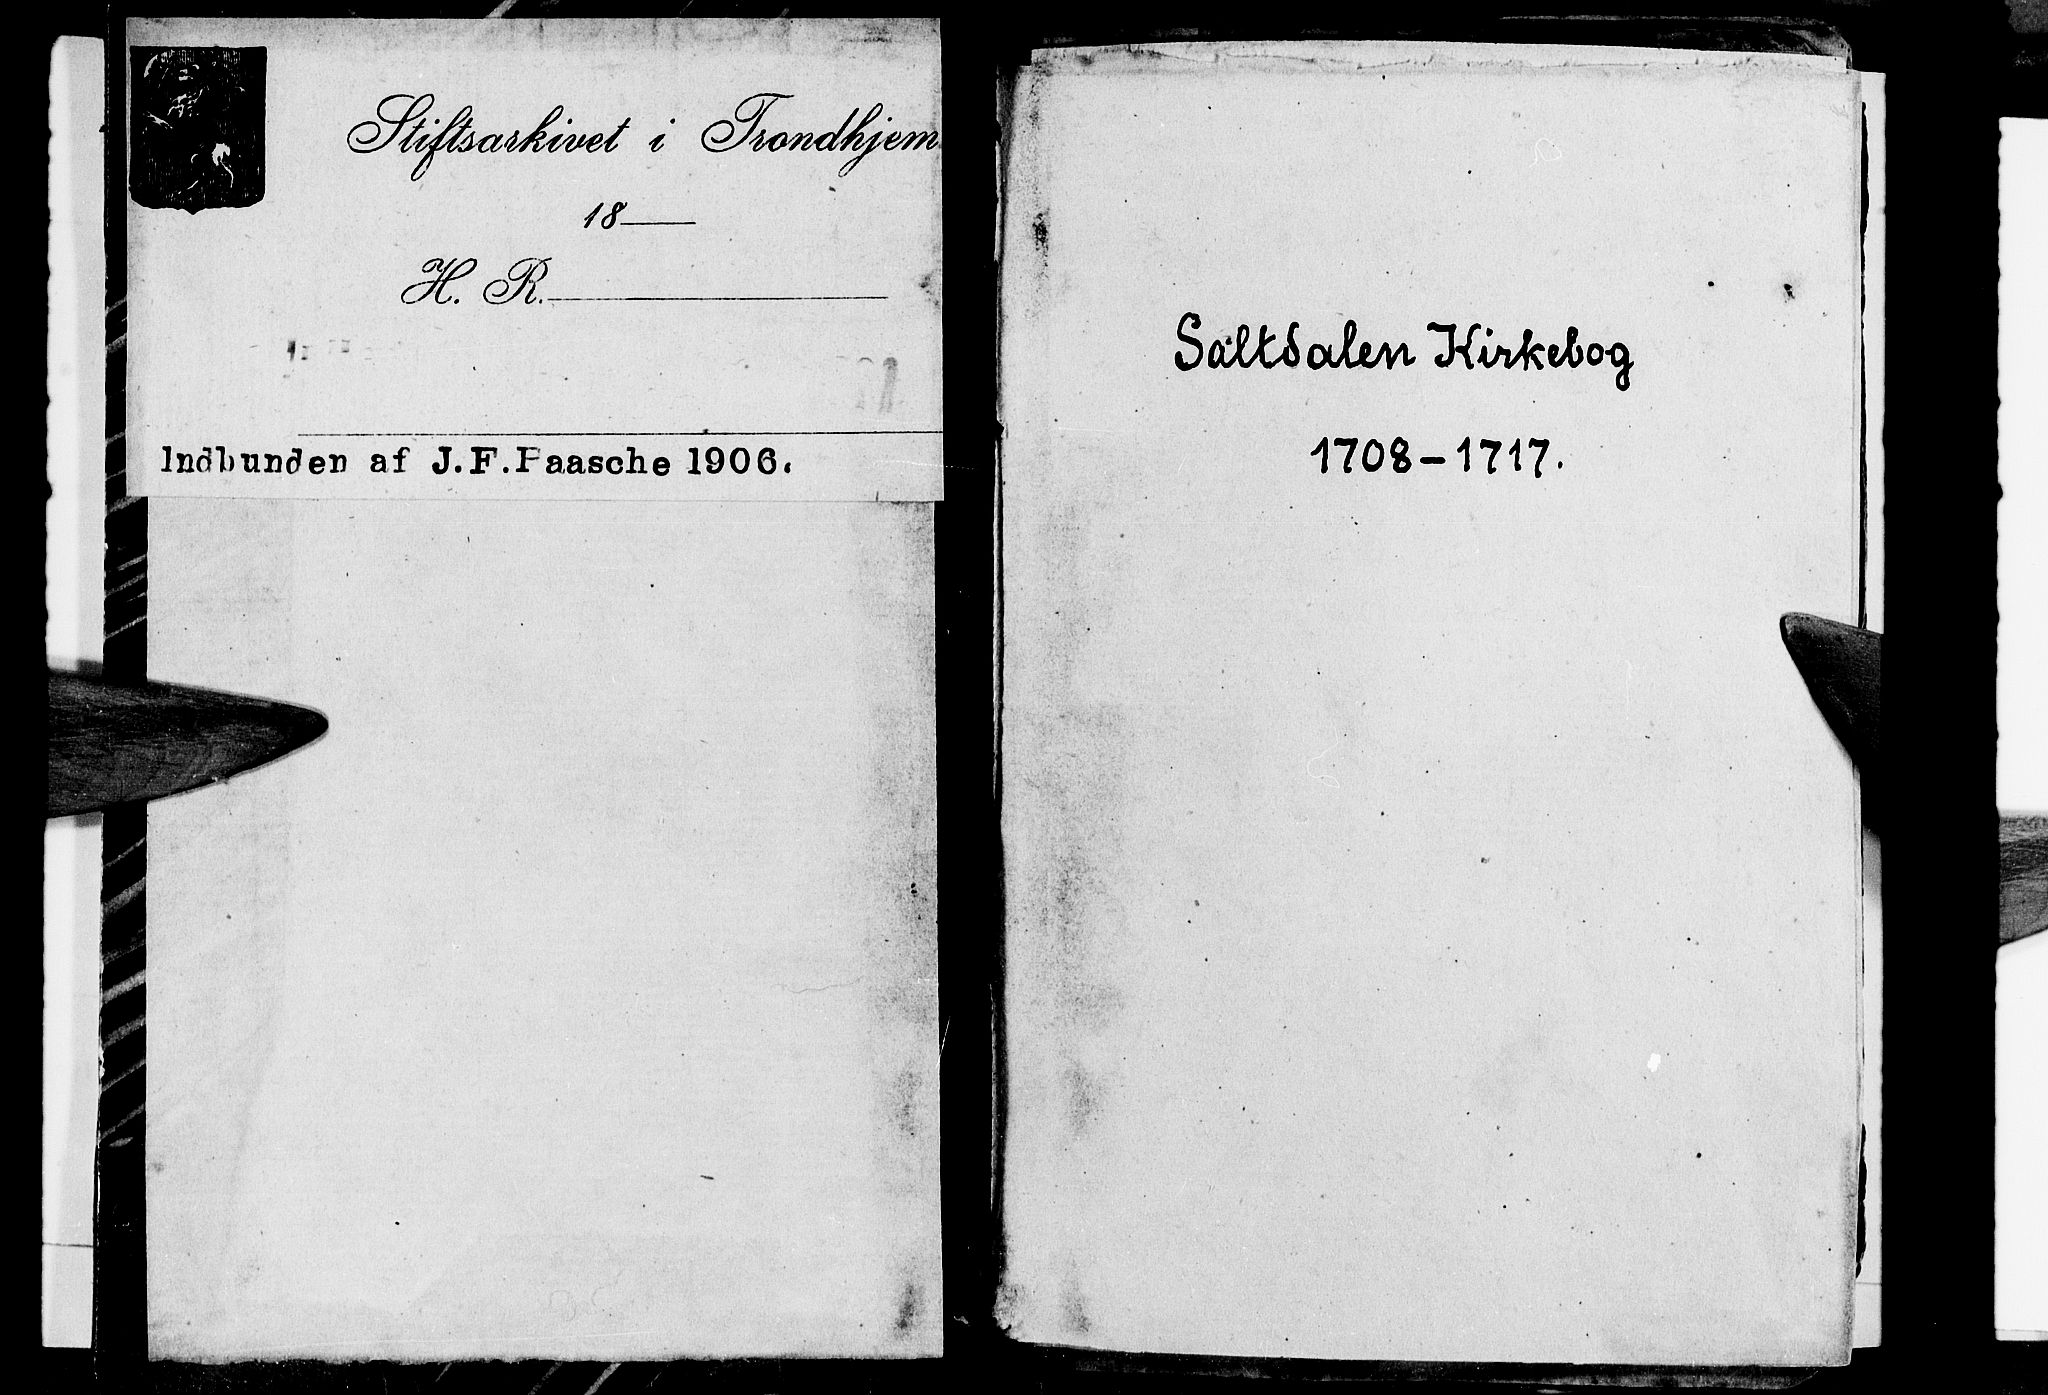 Stiftsarkivet i Trondhjem
18
H. R.
Indbunden af J.F.Paasche 1906.
Saltdalen Kirkebog
1708-1717.